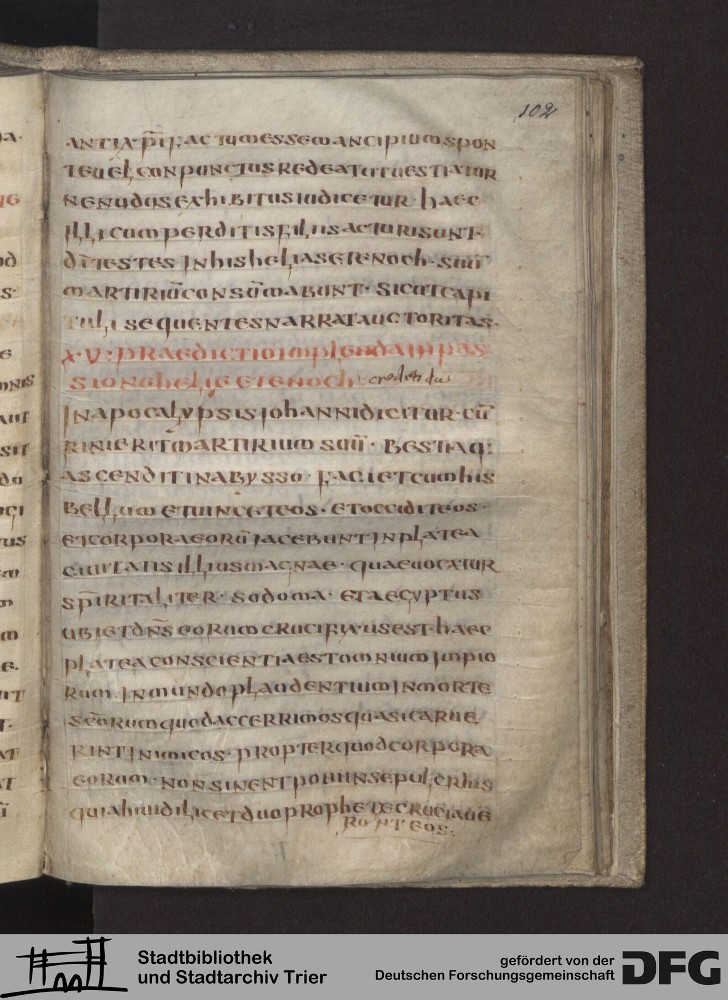 102
ANTIA
UEL CONPUNCTUS REDEAT UT UESTIATUR
NE NUDUS EXHIBITUS IUDICETUR · HAEC
ILLI CUM PERDITIS FILIIS ACTURI SUNT ·
DI TESTES IN HIS HELIAS ET ENOCH · SUŪ
MARTIRIŪ CONSŪMABUNT · SICUT CAPI
TULI SEQUENTES NARRAT AUCTORITAS ·
X·V· PRAEDICTIO IMPLENDA IN PAS
SIONE HELIE ET ENOCH
IN APOCALYPSIS IOHANNI DICITUR · CŪ
FINIERIT MARTIRIUM SUŪ · BESTIA Q:
ASCENDIT IN ABYSSO · FACIET CUM HIS
BELLUM ET UINCET EOS · ET OCCIDIT EOS ·
ET CORPORA EORŪ IACEBUNT IN PLATEA
CIUITATIS ILLIUS MAGNAE · QUAE UOCATUR
SPIRITALITER · SODOMA · ET AEGYPTUS
UBI ET DN̄S EORUM CRUCIFIXUS EST · HAEC
PLATEA CONSCIENTIA EST OMNIUM IMPIO
RUM IN MUNDO PLAUDENTIUM IN MORTE
SC̄ORUM QUOD ACCERRIMOS QUASI CARUE
RINT INIMICOS · PROPTER QUOD CORPORA
EORUM · NON SINENT PONI IN SEPULCRIUS
QUIA HII UIDILICET DUO PROPHETE CRUCIAUE
RUNT EOS:
Stadtbibliothek
und Stadtarchiv Trier
gefördert von der
Deutschen Forschungsgemeinschaft
DFG